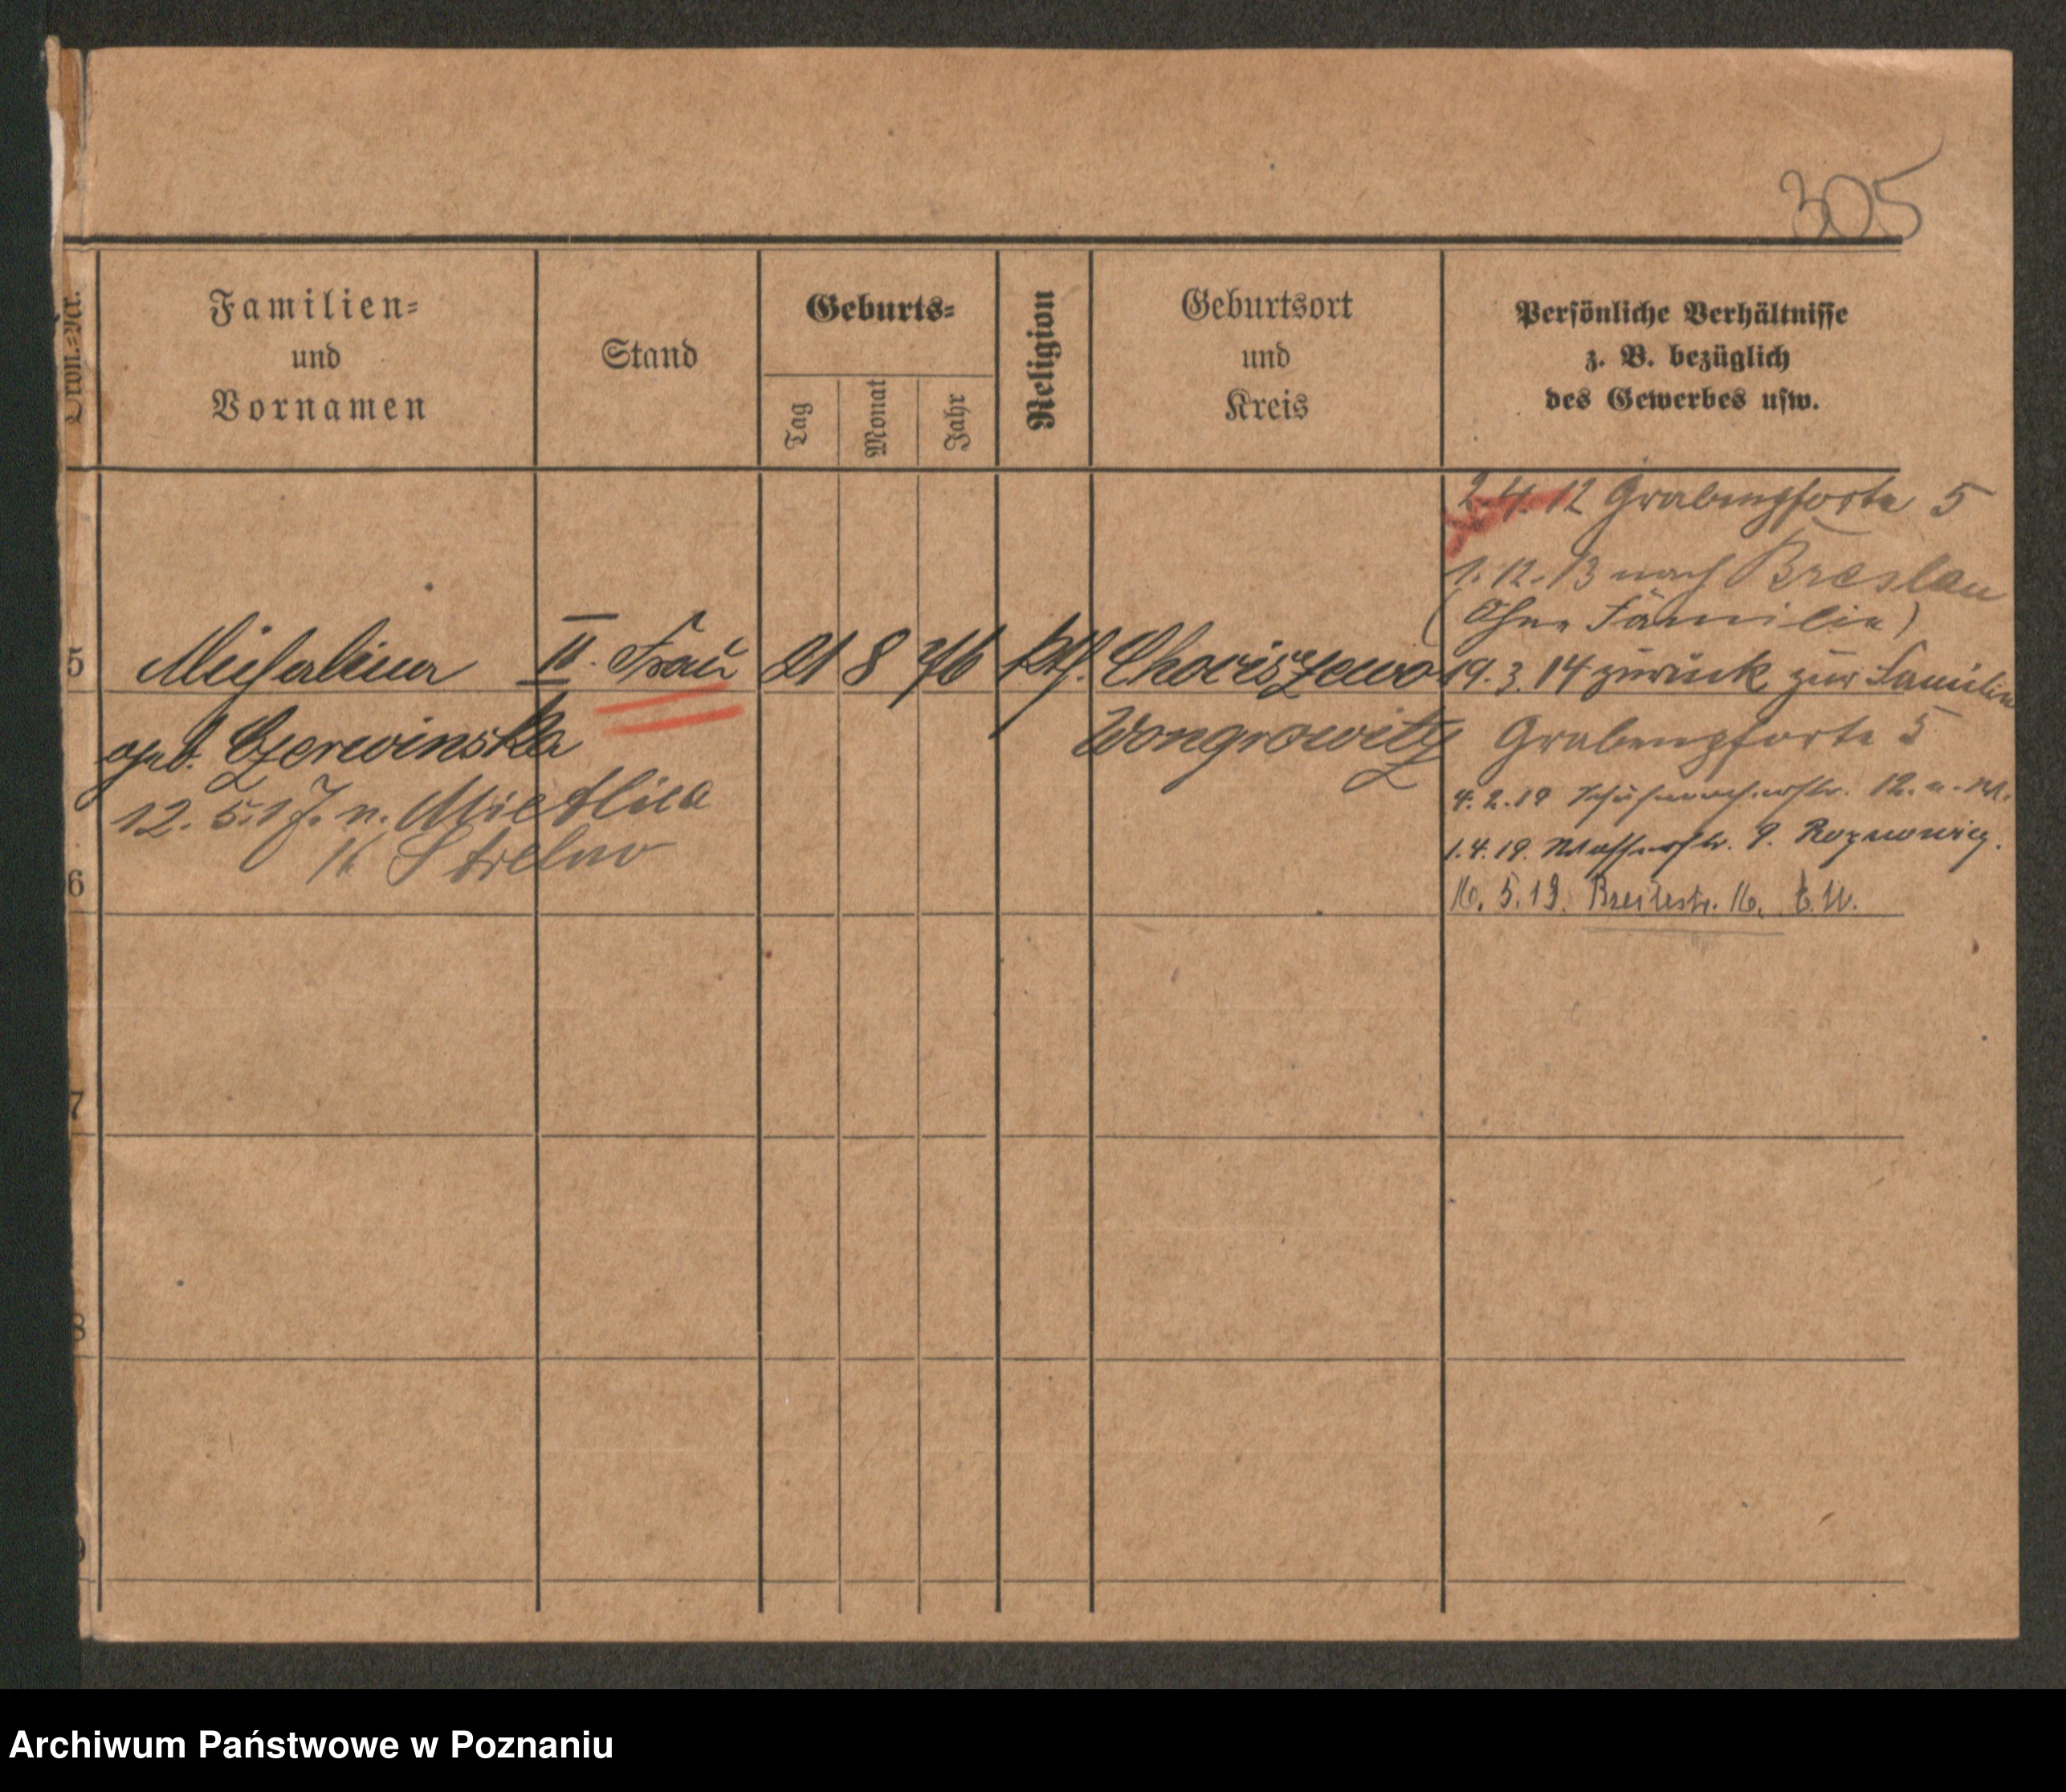 305
Ordn.=Nr.
Familien=
und
Vornamen
Stand
Geburts=
Tag
Monat
Jahr
Religion
Geburtsort
und
Kreis
Persönliche Verhältnisse
z. B. bezüglich
des Gewerbes usw.
2.4.12 Grabenpforte 5
1.12.13 nach Breslau
(Ohne Familie)
5 Michalina II. Frau 21 8 76 kth. 19.3.14 zurück zur Familie
geb. Czerwinska Wongrowitz Grabenpforte 5
12. 5.17. n. Mietlica
K Strelno
4.2.19 Schuhmacherstr. 12.
1.4.19. Wasserstr. 9.
6
16.5.19. Breitestr. 16. E.W.
7
8
9
Archiwum Państwowe w Poznaniu